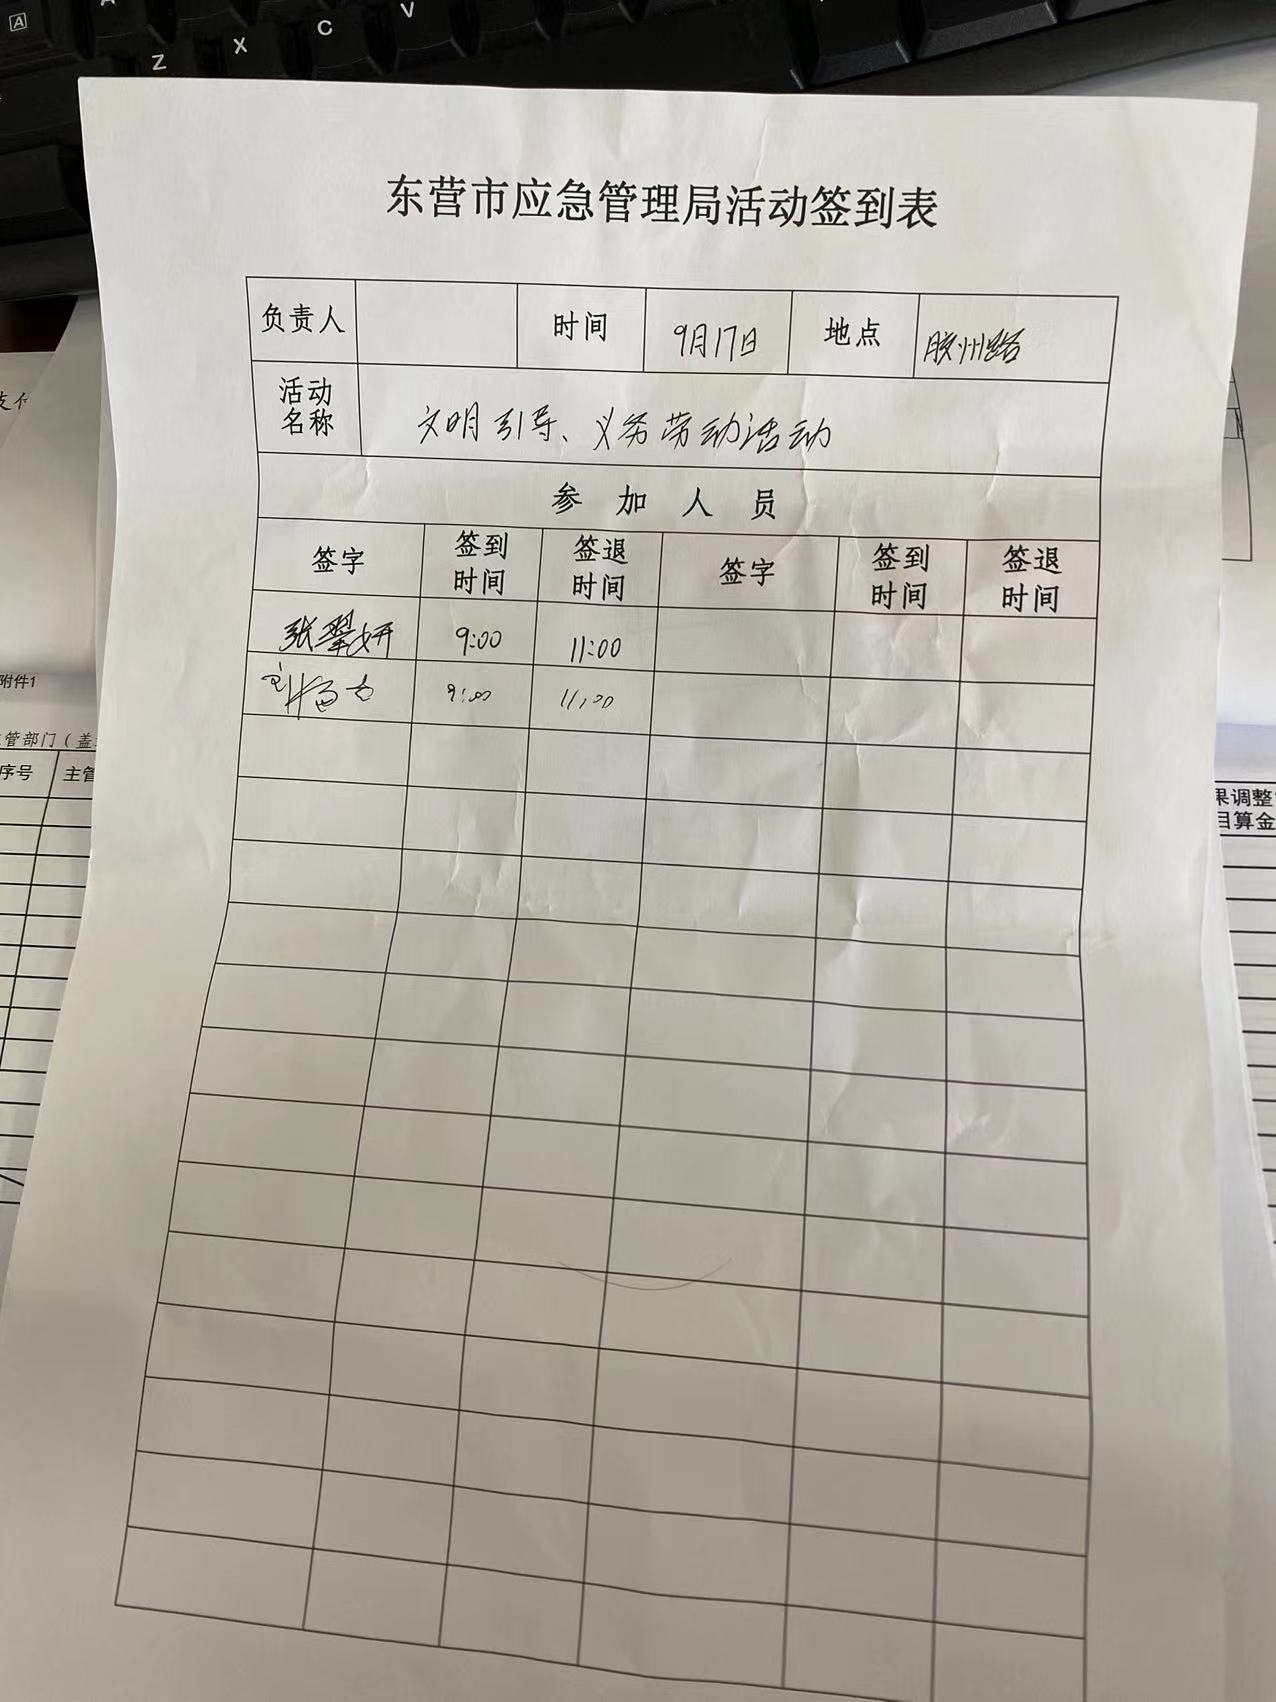 A
Z
X
C
V
东营市应急管理局活动签到表
负责人 时间 9月17日 地点 胶州路
活动名称 文明引导、义务劳动活动
参加人员
签字 签到时间 签退时间 签字 签到时间 签退时间
张翠妍 9:00 11:00
9:00 11:00
附件1
管部门（盖
序号 主管
果调整
目算金